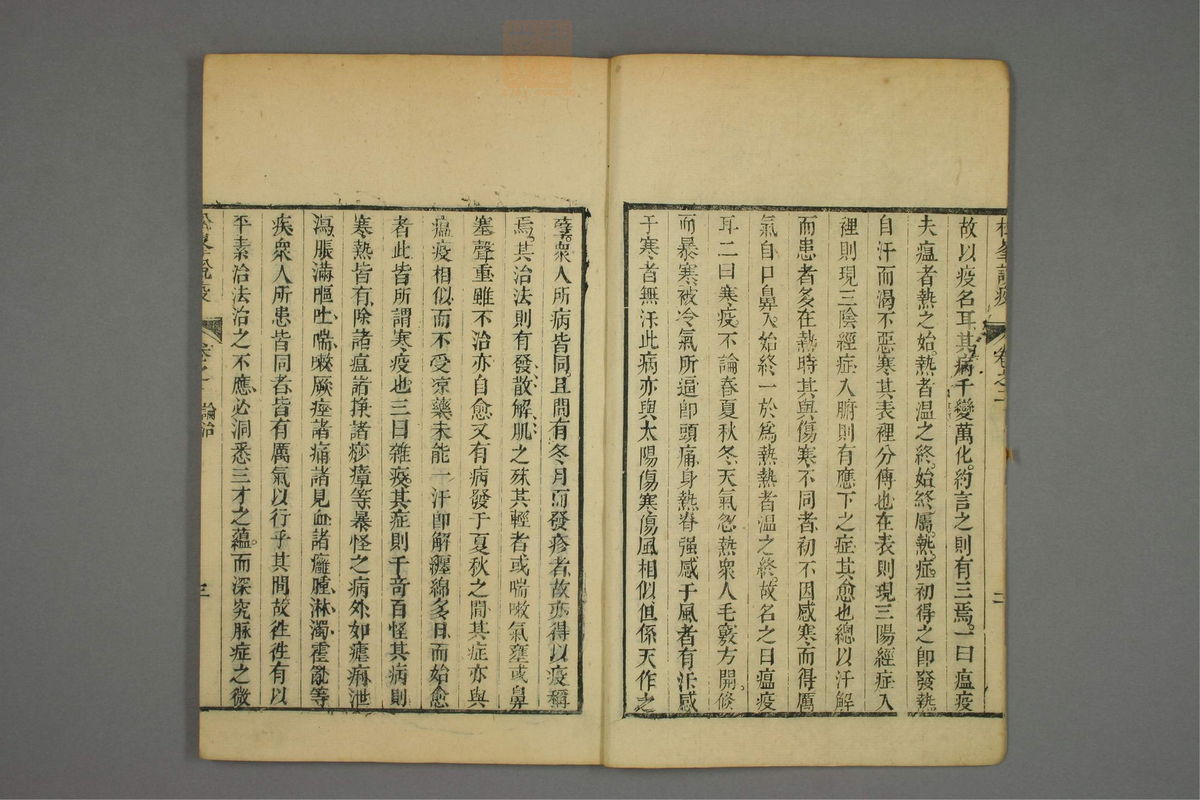 松峯說疫 卷之二 二
故以疫名耳其病千變萬化約言之則有三焉一曰瘟疫
夫瘟者熱之始熱者温之終始終屬熱症初得之即發熱
自汗而渴不惡寒其表裡分傳也在表則現三陽經症入
裡則現三陰經症入腑則有應下之症其愈也總以汗解
而患者多在熱時其與傷寒不同者初不因感寒而得厲
氣自口鼻入始終一於爲熱熱者温之終故名之曰瘟疫
耳二曰寒疫不論春夏秋冬天氣忽熱衆人毛竅方開倏
而暴寒被冷氣所逼即頭痛身熱脊强感于風者有汗感
于寒者無汗此病亦與太陽傷寒傷風相似但係天作之
孽衆人所病皆同且間有冬月而發疹者故亦得以疫稱
焉其治法則有發散解肌之殊其輕者或喘嗽氣壅或鼻
塞聲重雖不治亦自愈又有病發于夏秋之間其症亦與
瘟疫相似而不受凉藥未能一汗即解纒綿多日而始愈
者此皆所謂寒疫也三曰雜疫其症則千奇百怪其病則
寒熱皆有除諸瘟諸挣諸痧瘴等暴怪之病外如瘧痢泄
瀉脹滿嘔吐喘嗽厥痙諸痛諸見血諸癰腫淋濁霍亂等
疾衆人所患皆同者皆有厲氣以行乎其間故徃徃有以
平素治法治之不應必洞悉三才之蘊而深究脈症之微
松峯說疫 卷之二 論治 三